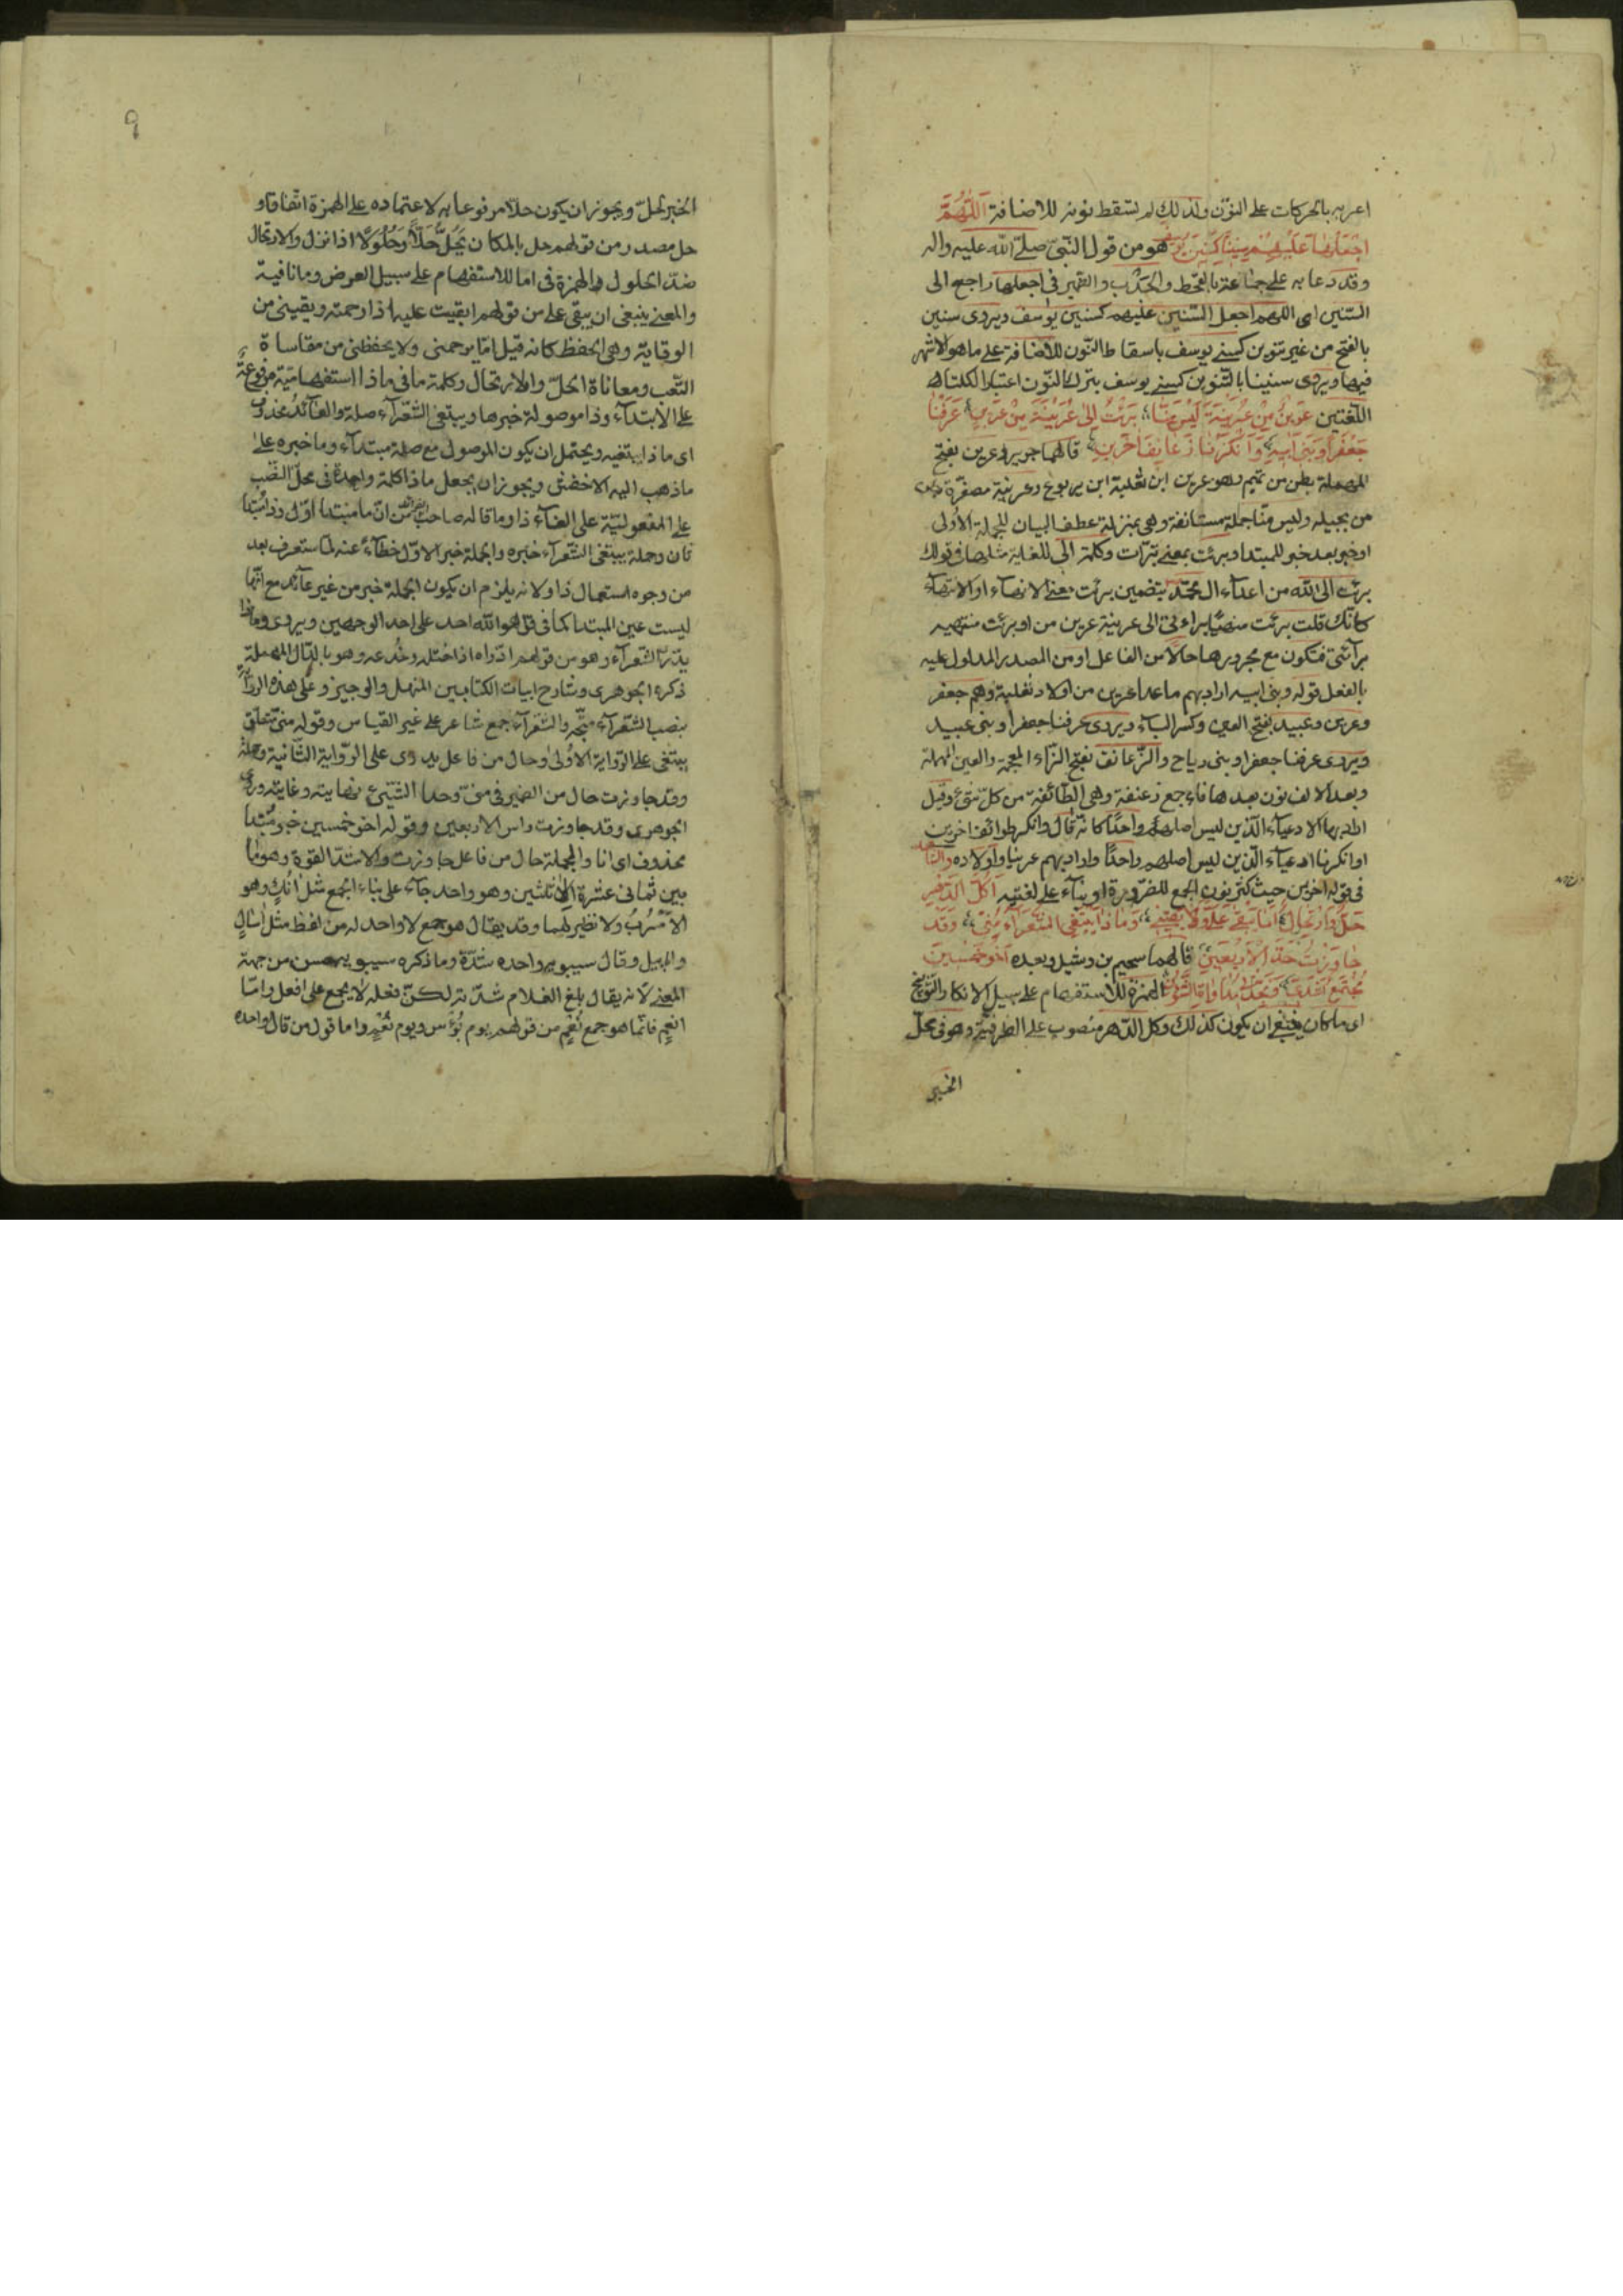 اعربه بالحركات على النون ولذلك لم تسقط نونه للاضافة اَللّٰهُمَّ
اجْعَلْهَا عَلَيْهِمْ سِنِينًا كَسِنِينَ يُوسُفَ هو من قول النبيّ صلى الله عليه واله
وقد دعا به على جماعة بالقحط والجدب والضمير فى اجعلها راجع الى
السّنين اى اللهم اجعل السّنين عليهم كسنين يوسف ويروى سنين
بالفتح من غير تنوين كسنى يوسف باسقاط النّون للاضافة على ما هو الاشهر
فيها ويروى سنينا بالتنوين كسنى يوسف بترك النّون اعتبارا لكلتا
اللّغتين عَرِينٌ مِنْ عُرَيْنَةَ لَيْسَ مِنَّا بَرِئْتُ اِلىٰ عُرَيْنَةَ مِنْ عَرِينِ عَرَفْنَا
جَعْفَرًا وَبَنِى اَبِيهِ وَاَنْكَرْنَا زَعَانِفَ اٰخَرِينِ قالهما جرير وعرين بفتح
المهملة بطن من تميم وهو عرين ابن ثعلبة ابن يربوع وعرينة مصغّرة
من بجيلة وليس منّا جملة مستانفة وهى بمنزلة عطف البيان للجملة الاولى
او خبر بعد خبر للمبتدا وبرئت بمعنى تبرّأت وكلمة الى للغاية مثلها فى قولك
برئت الى الله من اعداء ال محمّد بتضمين برئت معنى الانهاء او الانتهاء
كانّك قلت برئت منهيًا براءتى الى عرينة عرين من او برئت منتهيه
برآئتى فتكون مع مجرورها حالا من الفاعل او من المصدر المدلول عليه
بالفعل قوله وبنى ابيه اراد بهم ما عدا عرين من اولاد ثعلبة وهم جعفر
وعرين وعبيد بفتح العين وكسر الباء ويروى عرفنا جعفرا وبنى عبيد
ويروى عرفنا جعفرا وبنى رياح والزّعانف بفتح الزّاء المعجمة والعين المهملة
وبعد الالف نون بعدها فاء جمع زعنفة وهى الطّائفة من كلّ شئ وقيل
اراد بها الادعياء الّذين ليس اصلهم واحدًا كانّه قال وانكر طوائف اخرين
او انكرنا ادعياء الّذين ليس اصلهم واحدًا واراد بهم عرينا واولاده
فى قوله اخرين حيث كسر نون الجمع للضّرورة او بناء على لغتيه اَكُلَّ الدَّهْرِ
حَلٌّ وَارْتِحَالٌ اَمَا يُبْقِى عَلَىَّ وَلَا يَقِينِى وَمَاذَا يَبْتَغِى الشُّعَرَآءُ مِنِّى وَقَدْ
جَاوَزْتُ حَدَّ الْاَرْبَعِينِ قالهما سحيم بن وثيل وبعده اَخُو خَمْسِينَ
مُجْتَمِعٌ اَشُدِّى وَنَجَّذَنِى مُدَاوَرَةُ الشُّؤُنِ الهمزة للاستفهام على سبيل الانكار والتّوبيخ
اى ما كان ينبغى ان يكون كذلك وكل الدّهر منصوب على الظرفيّة وهو فى محلّ
الخبر
٩
الخبر لحلّ ويجوز ان يكون حلّا مرفوعا به لاعتماده على الهمزة اتّفاقا و
حل مصدر من قولهم حل بالمكان يَحُلُّ حَلًّا وَحُلُولًا اذا نزل والارتحال
ضدّ الحلول والهمزة فى اما للاستفهام على سبيل العرض وما نافية
والمعنى ينبغى ان يبقى على من قولهم ابقيت عليه اذا رحمته ويقينى من
الوقاية وهى الحفظ كانه قيل امّا يرحمنى ولا يحفظنى من مقاساة
التّعب ومعاناة الحلّ والارتحال وكلمة ما فى ماذا استفهاميّة مرفوعة
على الابتداء وذا موصولة خبرها ويبتغى الشّعرآء صلة والعآئد محذوف
اى ماذا يبتغيه ويحتمل ان يكون الموصول مع صلة مبتدآء وما خبره على
ما ذهب اليه الاخفش ويجوز ان يجعل ماذا كلمة واحدة فى محلّ النّصب
على المفعوليّة على الغآء ذا وما قاله صاحب من انّ ما مبتدا اوّل وذا مبتدا
ثان وجملة يبتغى الشّعرآء خبره والجملة خبر الاوّل خطآء عنه لما ستعرف بعد
من وجوه استعمال ذا ولانه يلزم ان يكون الجملة خبر من غير عآئد مع انّها
ليست عين المبتدا كما فى قل هو الله احد على احد الوجهين ويروى وماذا
يدّرى الشّعرآء وهو من قولهم ادّراه اذا اختله وخدعه وهو بالدّال المهملة
ذكره الجوهرى وشارح ابيات الكتابين المنهل والوجيز وعلى هذه الرواية
بنصب الشّعرآء متّجه والشّعرآء جمع شاعر على غير القياس وقوله منّى متعلّق
يبتغى على الرّواية الاولى وحال من فاعل يدرى على الرّواية الثّانية وجملة
وقد جاوزت حال من الضمير فى منّى وحد الشّيئ نهايته وغايته وروى
الجوهرى وقد جاوزت راس الاربعين وقوله اخو خمسين خبر مبتدا
محذوف اى انا والجملة حال من فاعل جاوزت والاشدّ القوة وهو ما
بين ثمانى عشرة الى ثلثين وهو واحد جآء على بناء الجمع مثل اٰنُكٍ وهو
الاُسْرُبُ ولا نظير لهما وقد يقال هو جمع لا واحد له من لفظه مثل اٰسال
وابابيل وقال سيبويه واحده شدّة وما ذكره سيبويه حسن من جهة
المعنى لانه يقال بلغ الغلام شدّته لكنّ فعلة لا يجمع على افعل وامّا
انعم فانّما هو جمع نُعْم من قولهم يوم بُؤْس ويوم نُعْم واما قول من قال واحده